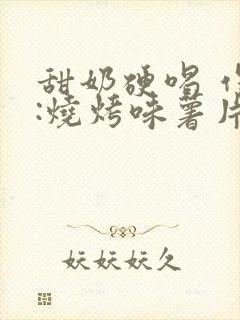 甜奶硬唱
:燒烤味薯片
妖妖妖久